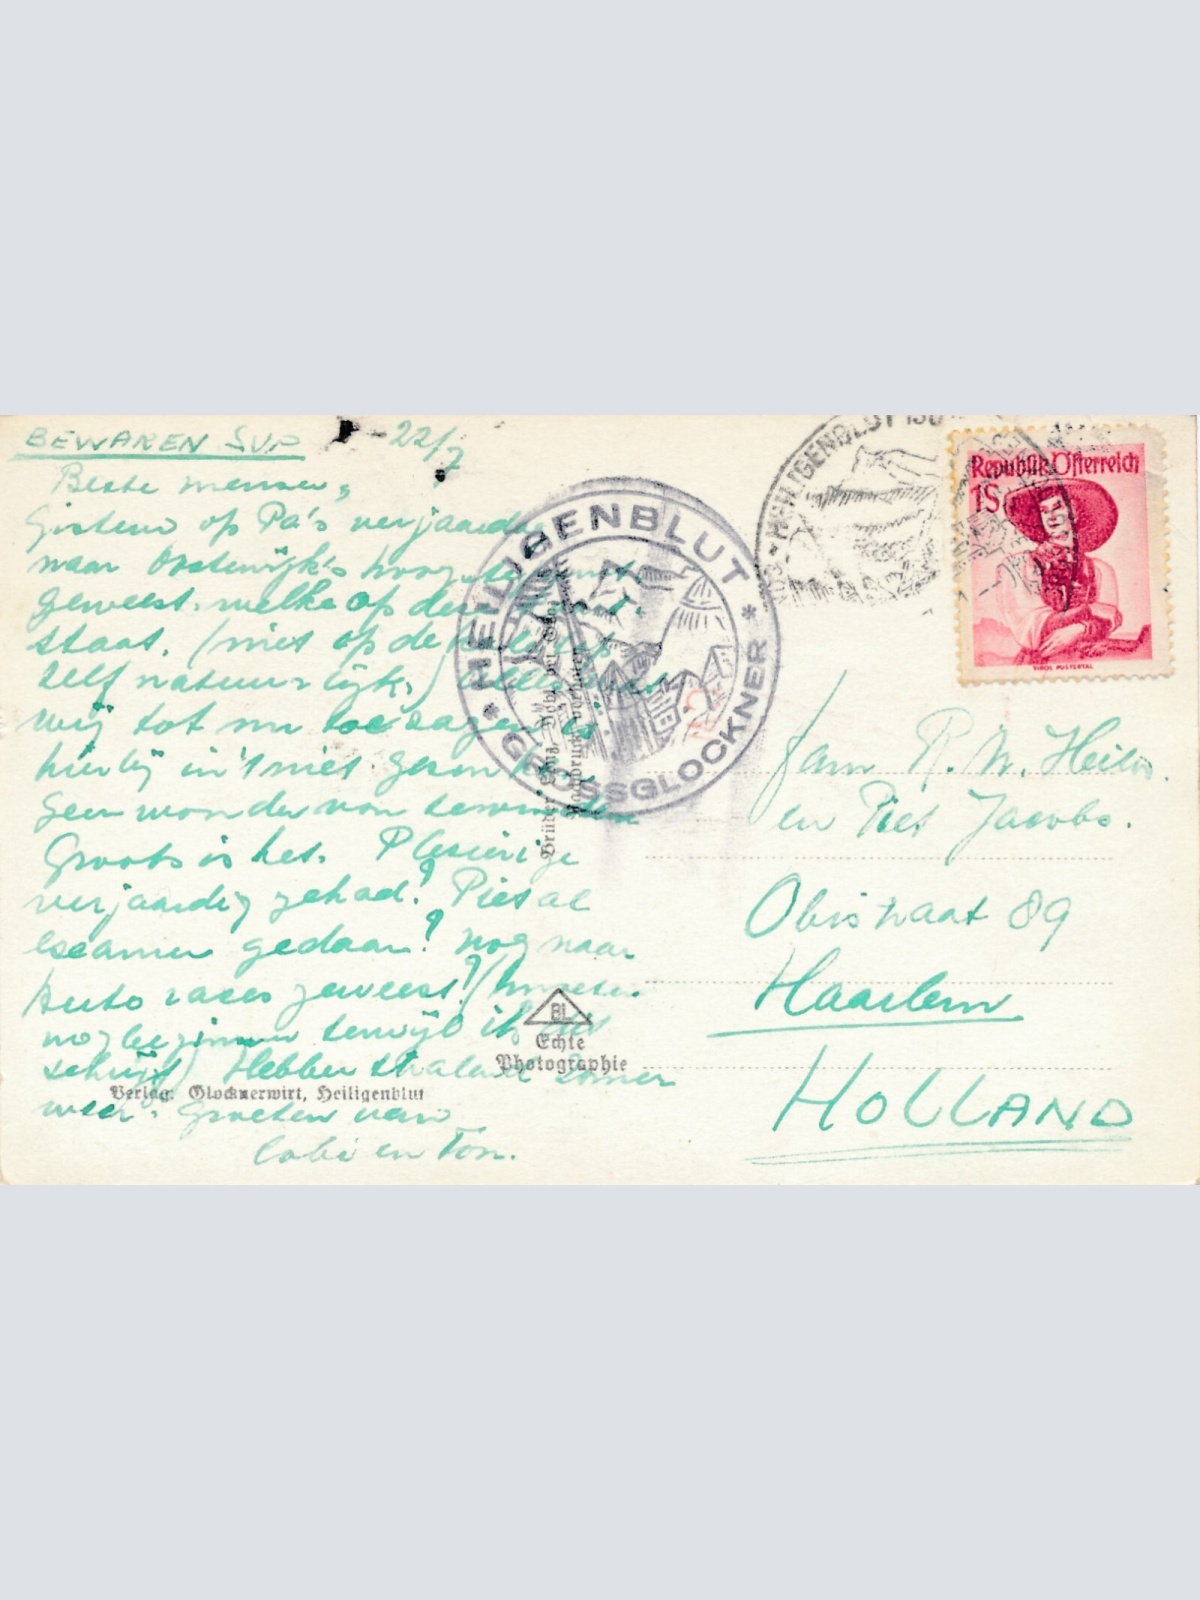 BEWAREN SVP - 22/7
Beste mensen,
Gisteren op Pa's verjaardag
naar Oostenrijk's hoogste punt
geweest. welke op deze kaart
staat, (niet op de
zelf natuurlijk,)
wij tot nu toe zagen, is
hierbij in 't niet gezonken
geen wonder van
Groots is het. Plezierige
verjaardag gehad? Piet al
examen gedaan? nog naar
auto races geweest? (moeten
nog beginnen terwijl ik dit
schrijf) Hebben stralend zomer
weer. Groeten van
en Ton.
HEILIGENBLUT
GROSSGLOCKNER
Nachdruck verboten
BL
Echte
Photographie
Verlag: Glocknerwirt, Heiligenblut
HEILIGENBLUT 1301
Republik Österreich
1S
TIROL PUSTERTAL
Fam R. M.
en Piet Jacobs.
Obistraat 89
Haarlem
HOLLAND